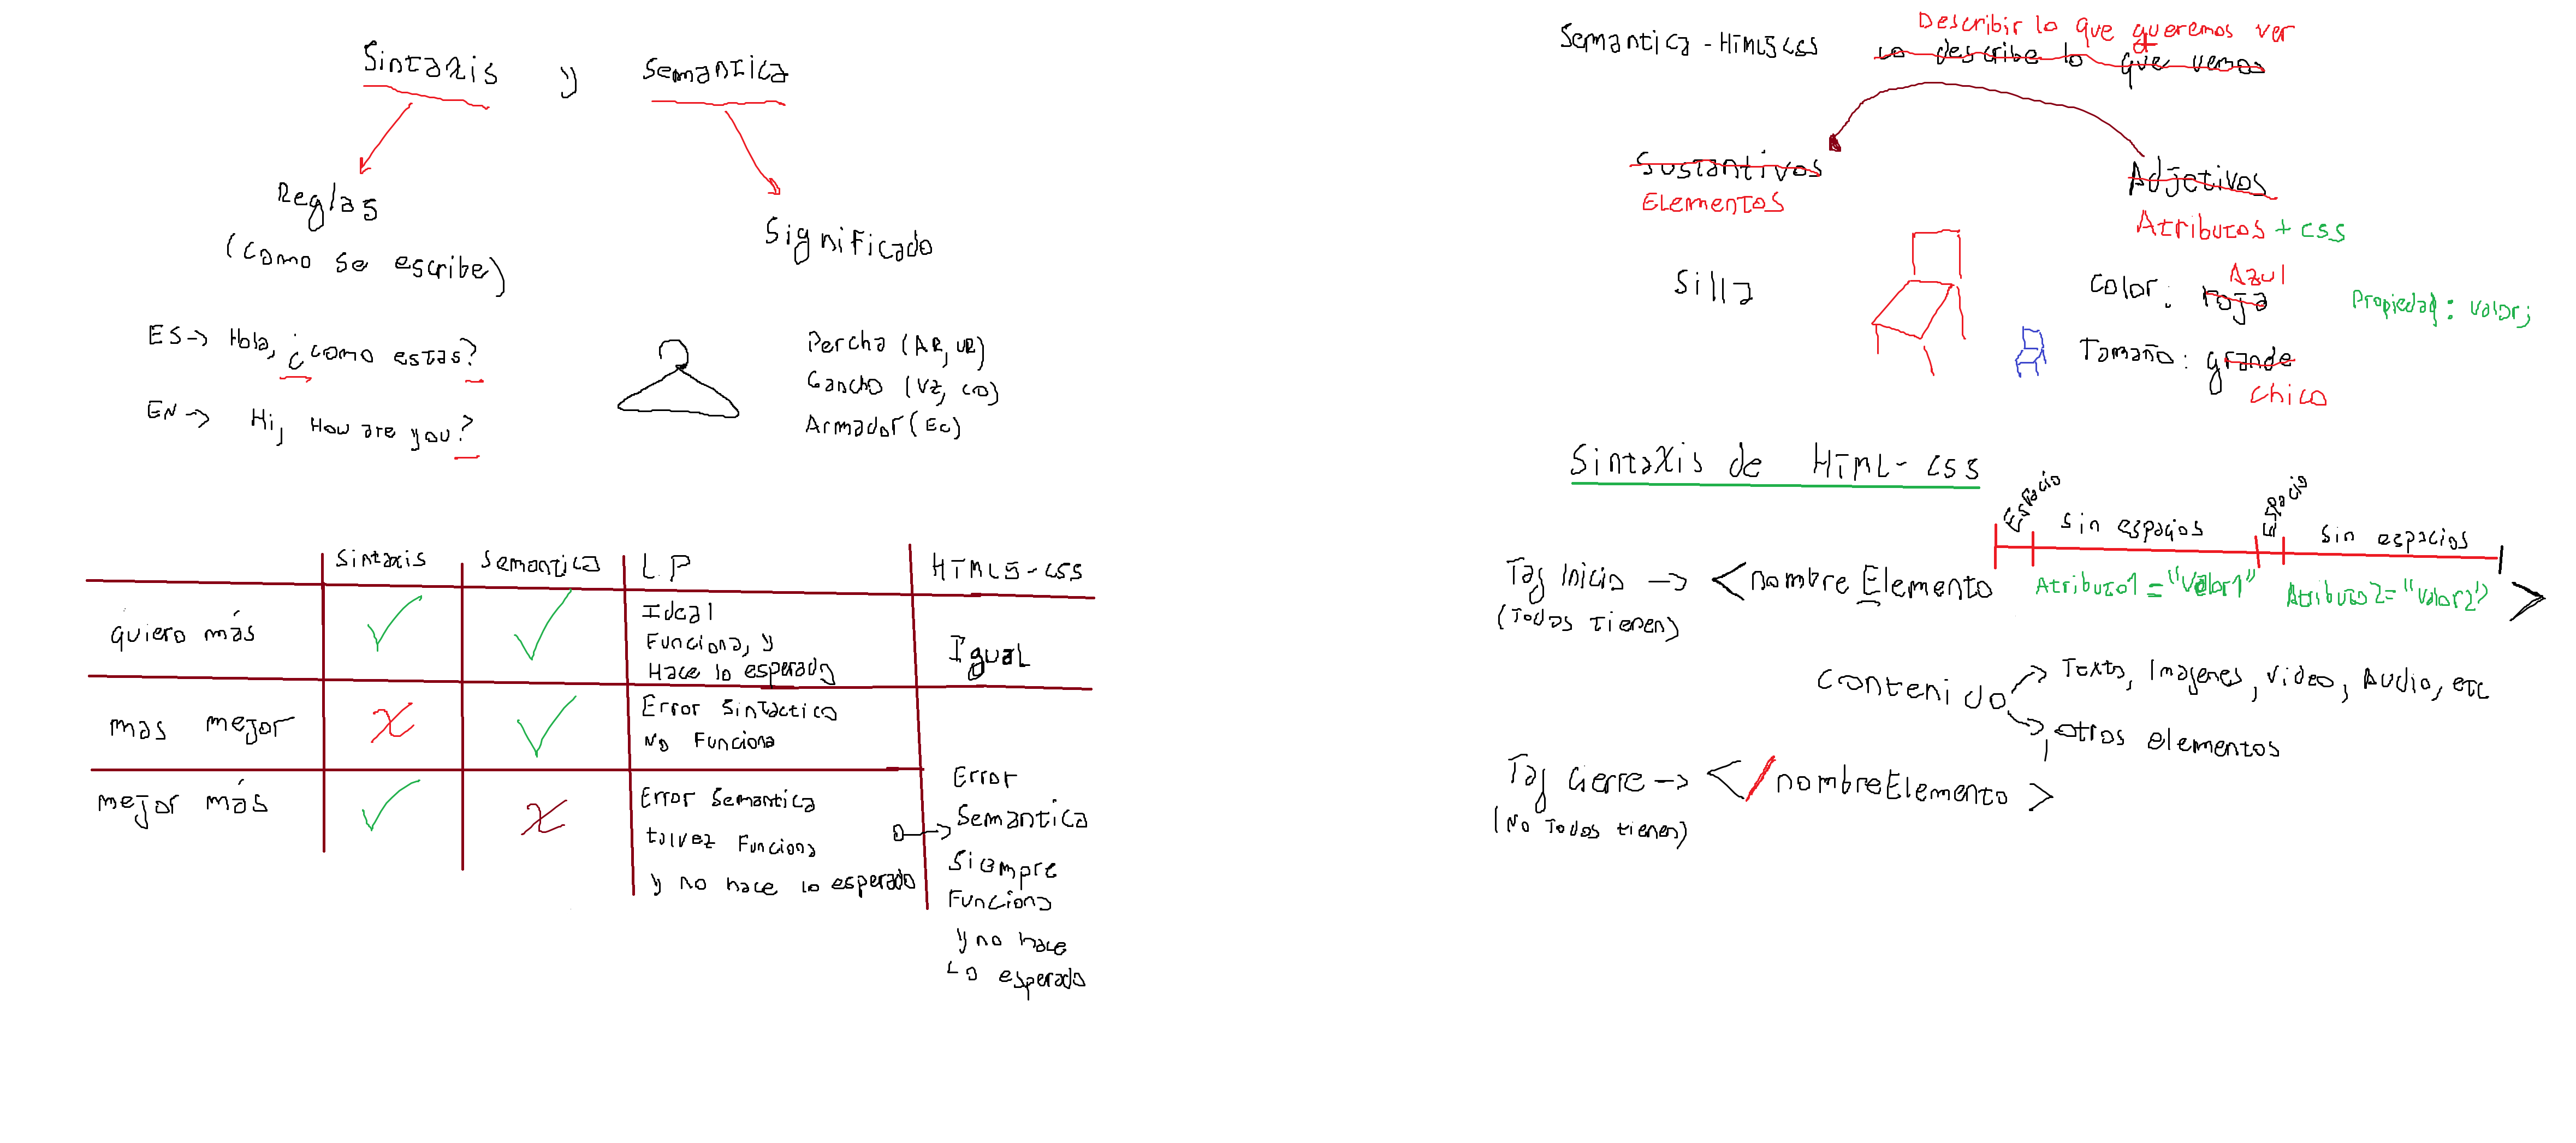 Sintaxis y Semantica
Reglas
(como se escribe)
Significado
ES-> Hola, ¿como estas?
EN-> Hi, How are you?
Percha (AR, UR)
Gancho (VZ, CO)
Armador (EC)
Sintaxis Semantica L.P HTML5-CSS
quiero más
Ideal
Funciona, y
Hace lo esperado
Igual
mas mejor
Error Sintactico
No Funciona
mejor más
Error Semantica
talvez Funciona
y no hace lo esperado
Error
Semantica
Siempre
Funciona
y no hace
Lo esperado
Semantica - HTML5 CSS
Describir lo que queremos ver
lo describe lo que vemos
Sustantivos
Elementos
Adjetivos
Atributos + CSS
Silla
Color: roja
Azul
Propiedad: valor;
Tamaño: grande
Chico
Sintaxis de HTML-CSS
Espacio sin espacios Espacio sin espacios
Tag Inicio -> <nombre Elemento Atributo1="Valor1" Atributo2="Valor2">
(Todos tienen)
Contenido
Texto, Imagenes, video, Audio, etc
otros elementos
Tag Cierre -> </nombreElemento>
(No Todos tienen)